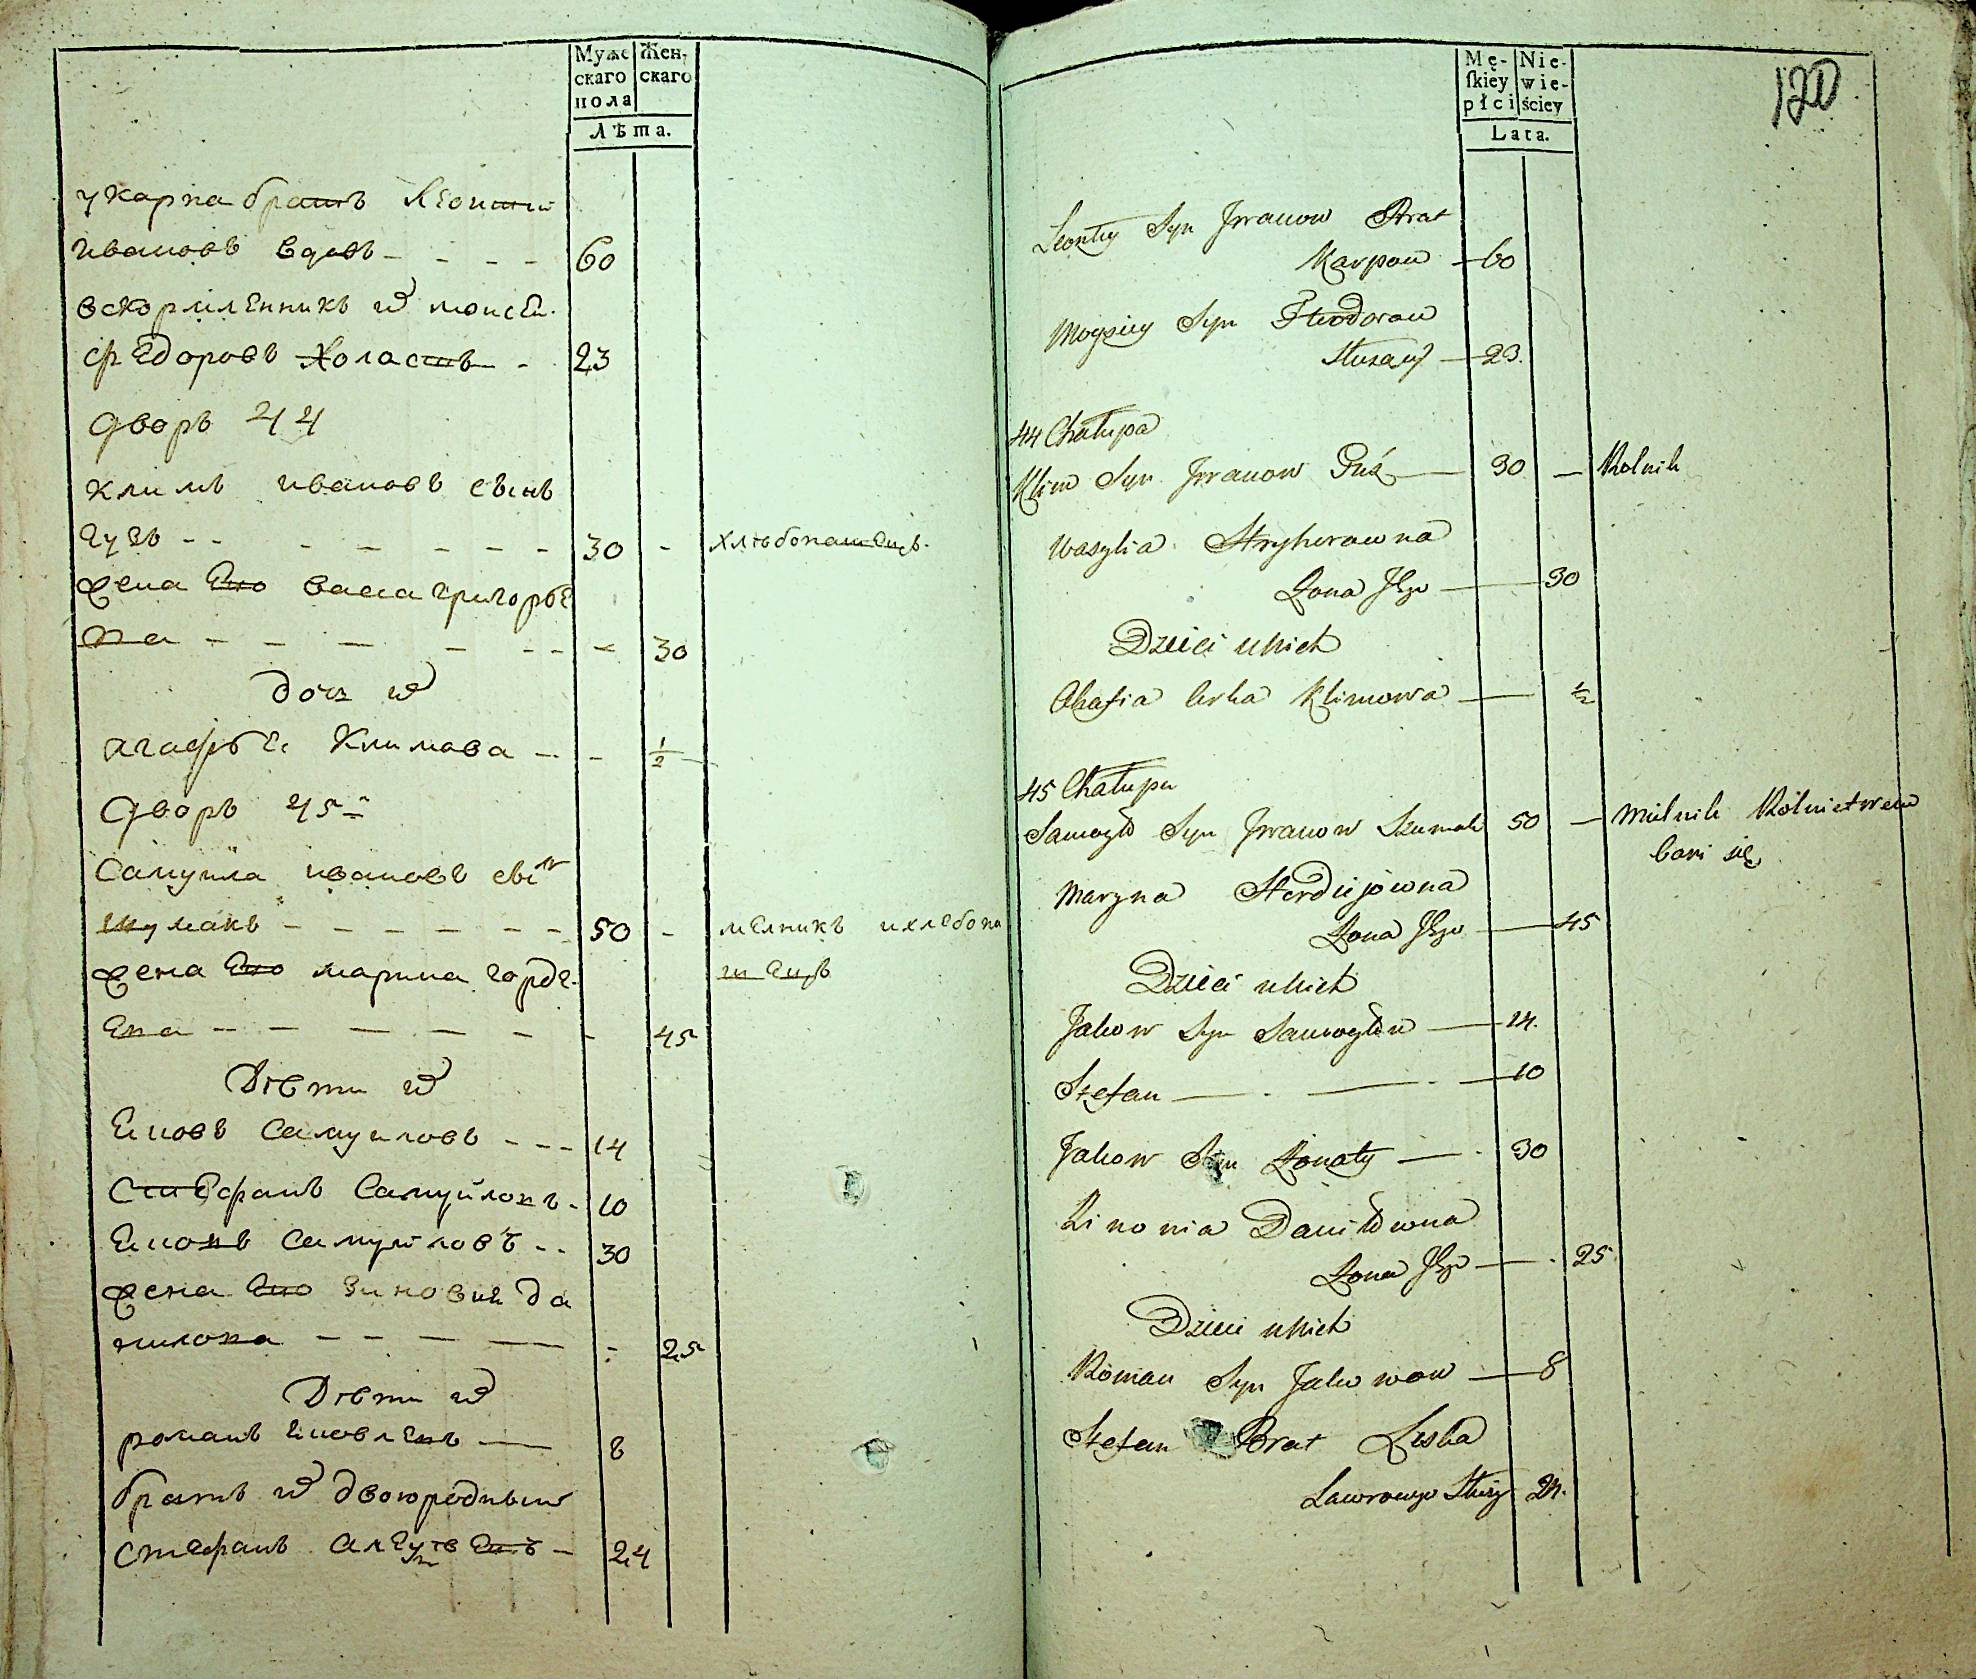 Муже
скаго
пола
Жен-
скаго
Лѣта.
у карпа братъ Леонтий
ивановъ вдовъ - - - - 60
вскормленникъ моисей
федоровъ холастъ - 23
дворъ 44
климъ ивановъ сынъ
гузъ - - - - - - - 30 - хлѣбопашецъ.
жена Его васа григорье
на - - - - - - - 30
дочь
агафья Климова - - 1/2
дворъ 45
Самуила ивановъ сы
шумакъ - - - - - - - 50 - мелникъ ихлебопа
шецъ
жена Его марина горде-
Ена - - - - - - - 45
Дѣти
Яковъ Самуиловъ - - - 14
Стефанъ Самуйловъ - 10
Яковъ Самуйловъ - - 30
жена Его зиновия да
нилова - - - - - 25
Дѣти
романъ Яковлевъ — 8
братъ двоюродный
стефанъ - 24
Mę-
ſkiey
płci
Nie-
wie-
ściey
Lata.
120
Leontiy Syn Jwanow Brat
Karpow — 60
Moysiey Syn Fteodorow
— 23.
44 Chałupa
Klim Syn Jwanow Guź — 30 — Rolnik
Wasylia Hryhorowna
Żona Jego — 30
Dzieci u Nich
Ahafia Curka Klimowa — ½
45 Chałupa
Samoyło Syn Jwanow Szumak 50 — Mielnik Rolnictwem
bawi się
Maryna Hordiejowna
Żona Jego — 45
Dzieci u Nich
Jakow Syn Samoyłow — 14.
Stefan — — 10
Jakow Syn Żonaty — 30
Zinowia Daniłowna
Żona Jego — 25
Dzieci u Nich
Roman Syn Jakowow — 8
Stefan Brat
24.